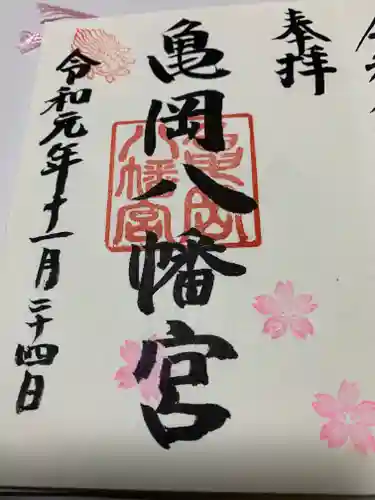 奉拝
亀岡八幡宮
亀岡八幡宮
令和元年十一月二十四日